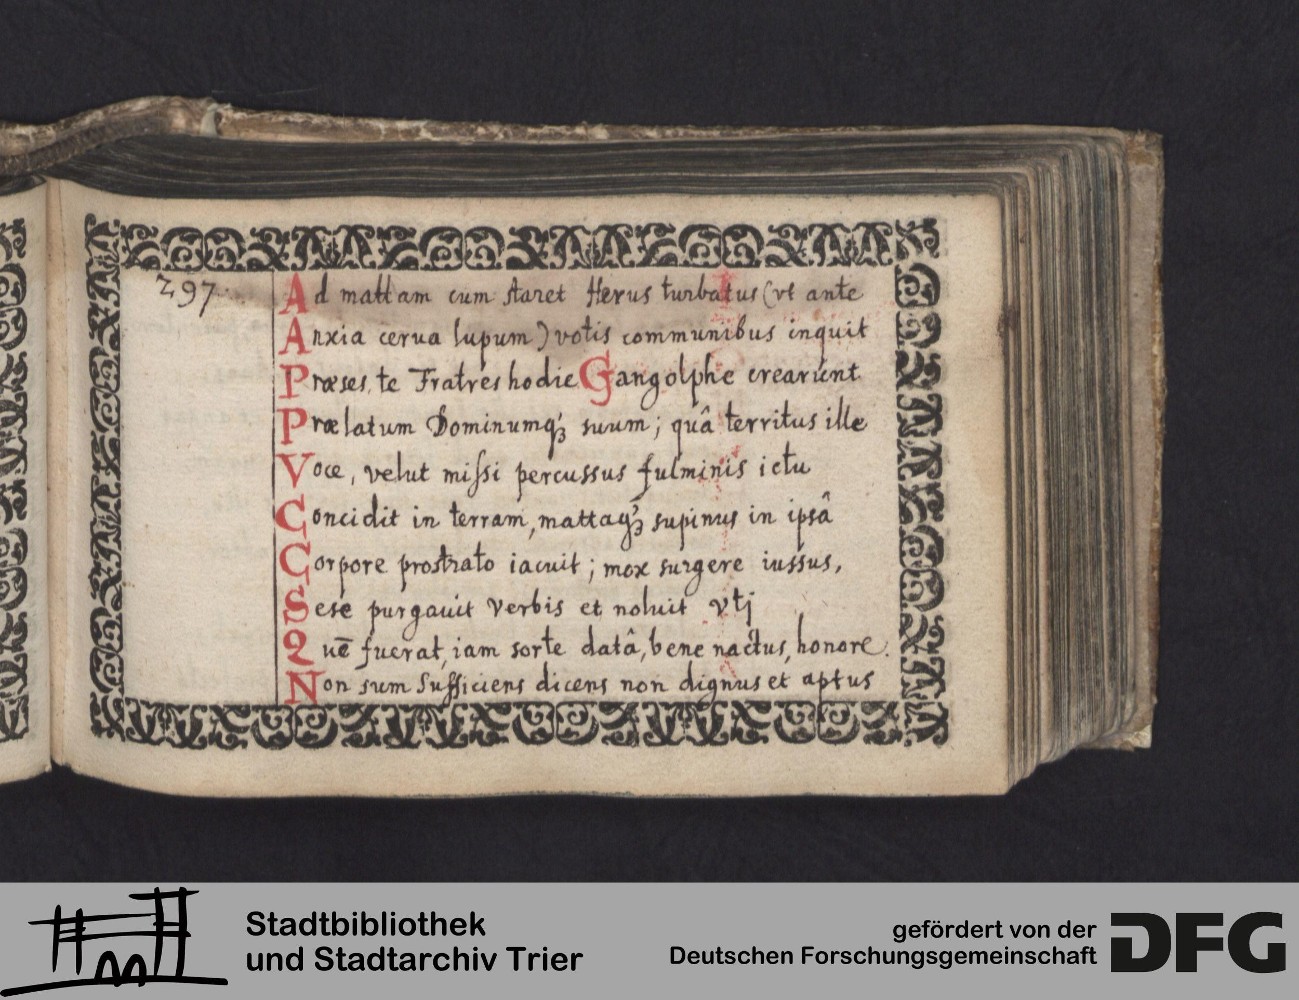 297.
Ad mattam cum staret Herus turbatus (vt ante
Anxia cerua lupum) votis communibus inquit
Præses, te Fratres hodie Gangolphe crearunt
Prælatum Dominumq́ꝫ suum; quâ territus ille
Voce, velut missi percussus fulminis ictu
Concidit in terram, mattaq́ꝫ supinus in ipsâ
Corpore prostrato iacuit; mox surgere iussus,
Sese purgauit verbis et noluit vtj
Quē fuerat, iam sorte datâ, bene nactus, honore.
Non sum sufficiens dicens non dignus et aptus
Stadtbibliothek
und Stadtarchiv Trier
gefördert von der
Deutschen Forschungsgemeinschaft
DFG